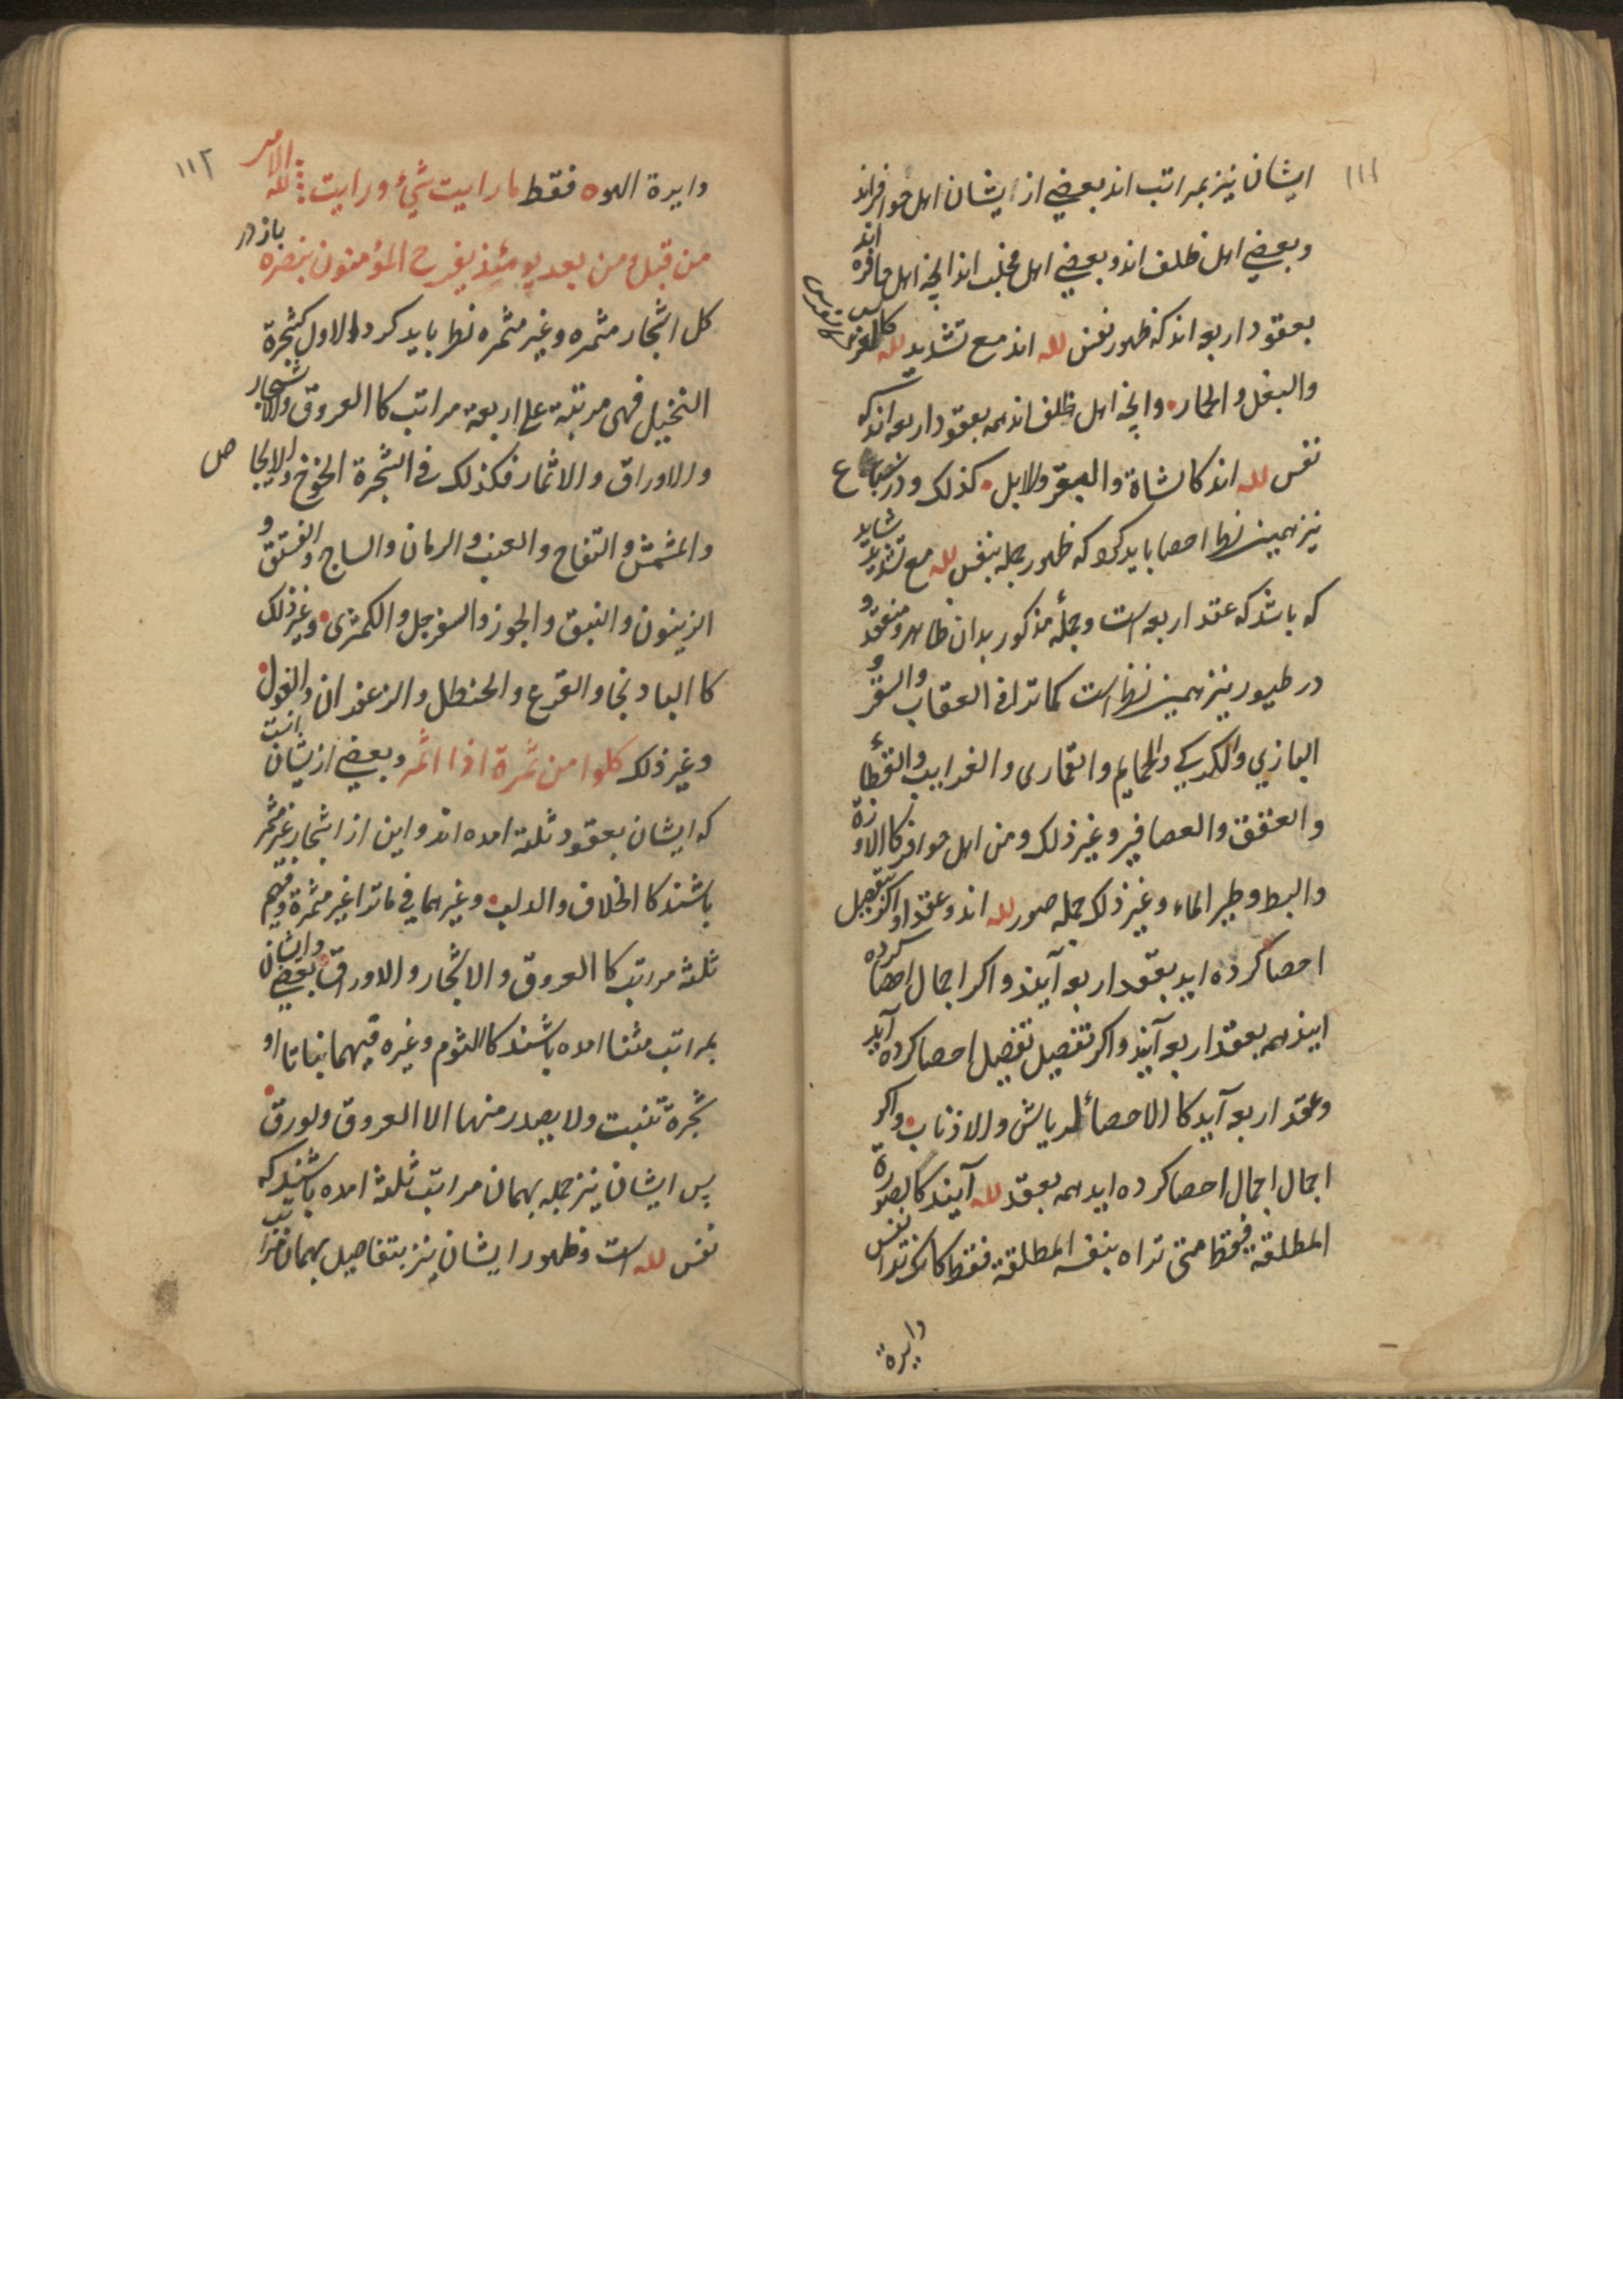 ١١١
ایشان نیز بمراتب اند بعضی از ایشان اهل حوافراند
و بعضی اهل ظلف اند و بعضی اهل مخلب اند انچه اهل حافره اند
بعقود اربعه اند که ظهور نفس لله اند مع تشدید لله کالفرس
والبغل والحمار وانچه اهل ظلف اند همه بعقود اربعه اند که
نفس لله اند کالشاة والبقر والابل کذلک و در سباع
نیز همین نظر احصا باید کرد که ظهور جمله بنفس لله مع تشدید شاید
که باشد که عقد اربعه است و جملهٔ مذکور بدان ظاهر و منعقد و
در طیور نیز همین نظر است کما ترا فی العقاب والسقر و
البازی والکرکی والحمایم والقماری والغرابیب والقطأ
والعقعق والعصافیر و غیر ذلک و من اهل حوافر کالاوزة
والبط و طیر الماء و غیر ذلک جمله صور لله اند و عقد او اکر بتفصیل
احصا کرده اید بعقد اربعه آیند و اکر اجمال احصا کرده
ایند همه بعقد اربعه آیند و اکر تفصیل تفصیل احصا کرده آید
و عقد اربعه آید کالاحصائل ریاش والاذناب و اکر
اجمال اجمال احصا کرده اید همه بعقد لله آیند کالصورة
المطلقة فقط متی تراه بنفسه المطلقة فقط کانک ترا نفس
دایره
١١٢
دایرة الهوه فقط ما رایت شیء و رایت لله الامر
من قبل و من بعد یومئذ یفرح المؤمنون بنصره باز در
کل اشجار مثمره و غیر مثمره نظر باید کرد والاول کشجرة
النخیل فهی مرتبة علی اربعة مراتب کالعروق والاشجار
والاوراق والاثمار فکذلک فی الشجرة الخوخ والایجاص
والمشمش والتفاح والعنب والرمان والساج والفستق و
الزیتون والنبق والجوز والسفرجل والکمثری و غیر ذلک
کالبادنجا والقرع والحنطل والزعفران والفول
و غیر ذلک کلوا من ثمرة اذا اثمر و بعضی ازیشان انست
که ایشان بعقود ثلثه امده اند و این از اشجار غیر مثمر
باشند کالخلاف والدلب و غیرهما فی ماترا غیر مثمرة و فیهم
ثلثة مراتب کالعروق والاشجار والاوراق و بعضی و ایشان
بمراتب مثنا امده باشند کالثوم و غیره فیهما نباتا او
شجرة تنبت ولا یصدر منها الا العروق ولورق
پس ایشان نیز جمله بهمان مراتب ثلثة امده باشند که
نفس لله است و ظهور ایشان نیز بتفاصیل بهمان مراتب